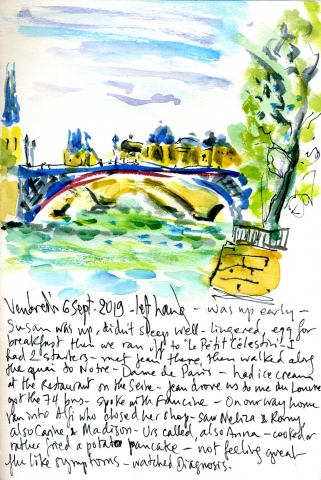 Vendredi 6 Sept. 2019 - left hand - was up early -
Susan was up, didn't sleep well - lingered, egg for
breakfast then we ran off to "Le Petit Célestin". I
had 2 starters - met Jean there, then walked along
the quai to Notre-Dame de Paris - had ice cream
at the restaurant on the Seine - Jean drove us to the Louvre
got the 74 bus - spoke with Francine - On our way home
ran into who closed her shop - saw &
also & Madison - Urs called, also Anna - cooked or
rather fried a potato pancake - not feeling great
flu like symptoms - watched Diagnosis.